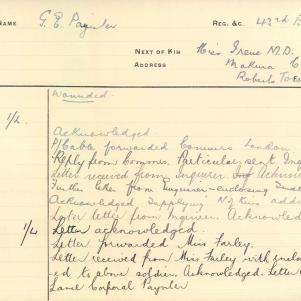 NAME G. E. Paynter REG. &C. 43rd B
NEXT OF KIN Miss Irene M.D.
ADDRESS Makura C
Roberts To
Wounded.
1/2. Acknowledged
P/Cable forwarded Commrs London
Reply from Commrs. Particulars sent Inq
Letter received from Inquirer. Acknow
Further letter from Inquirer enclosing
Acknowledged supplying N/Kins add
Later letter from Inquirer. Acknowled
1/4 Letter acknowledged.
Letter forwarded Miss Farley.
Letter received from Miss Farley with
ed to above soldier. Acknowledged. Letter
Lance Corporal Paynter